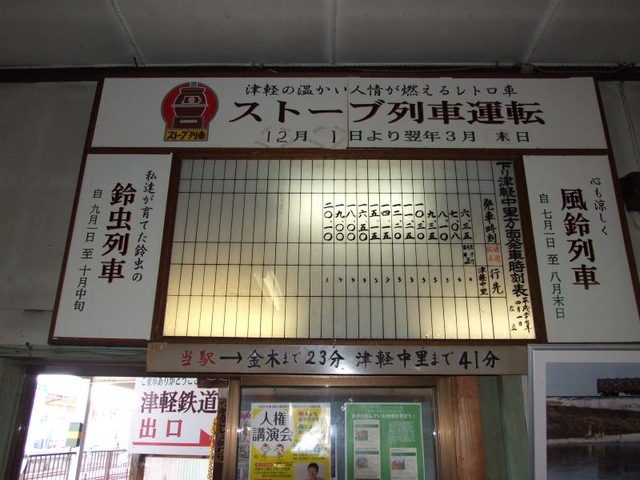 津軽の温かい人情が燃えるレトロ車
ストーブ列車運転
12月 1日より翌年3月 末日
ストーブ列車
心も涼しく
風鈴列車
自 七月一日 至 八月末日
下り津軽中里方面発車時刻表
発車時刻
行先
津軽中里
六、三五
七、〇八
八、一〇
九、三五
一〇、三〇
一六、五〇
一八、〇〇
一九、〇〇
二〇、一〇
私達が育てた鈴虫の
鈴虫列車
自 九月一日 至 十月中旬
当駅→金木まで23分 津軽中里まで41分
ご乗車ありがとうご
津軽鉄道
出口
人権
講演会